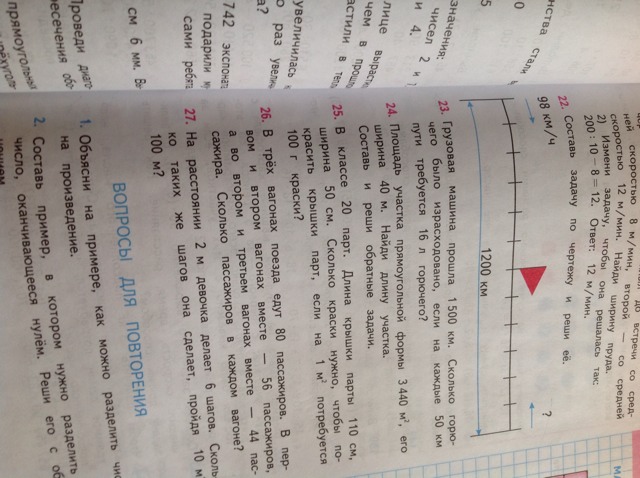 скоростью 8 м/мин, второй — со средней
скоростью 12 м/мин. Найди ширину пруда.
2) Измени задачу, чтобы она решалась так:
200 : 10 − 8 = 12. Ответ: 12 м/мин.
22. Составь задачу по чертежу и реши её.
98 км/ч
?
1200 км
23. Грузовая машина прошла 1500 км. Сколько горю-
чего было израсходовано, если на каждые 50 км
пути требуется 16 л горючего?
24. Площадь участка прямоугольной формы 3440 м², его
ширина 40 м. Найди длину участка.
Составь и реши обратные задачи.
25. В классе 20 парт. Длина крышки парты 110 см,
ширина 50 см. Сколько краски нужно, чтобы по-
красить крышки парт, если на 1 м² потребуется
100 г краски?
26. В трёх вагонах поезда едут 80 пассажиров. В пер-
вом и втором вагонах вместе — 56 пассажиров,
а во втором и третьем вагонах вместе — 44 пас-
сажира. Сколько пассажиров в каждом вагоне?
27. На расстоянии 2 м девочка делает 6 шагов. Сколь-
ко таких же шагов она сделает, пройдя 10 м
100 м?
ВОПРОСЫ ДЛЯ ПОВТОРЕНИЯ
1. Объясни на примере, как можно разделить
на произведение.
2. Составь пример, в котором нужно разделить
число, оканчивающееся нулём. Реши его с
стали
значения:
чисел 2 и
и 4.
чем в
увеличилась
раз
742
подарили
сами
см 6 мм.
Проведи